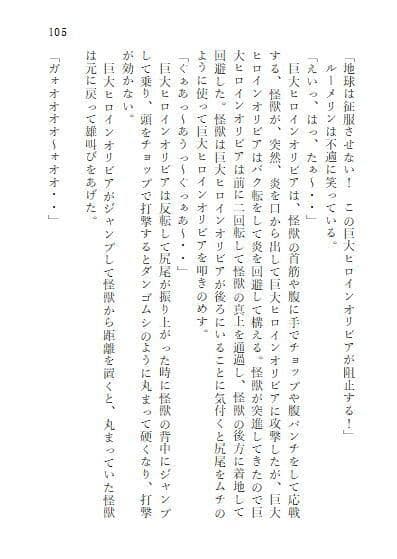 105
「地球は征服させない！　この巨大ヒロインオリビアが阻止する！」
ルーメリンは不適に笑っている。
「えいっ、はっ、たぁ～・・」
巨大ヒロインオリビアは、怪獣の首筋や腹に手でチョップや腹パンチをして応戦
する。怪獣が、突然、炎を口から出して巨大ヒロインオリビアに攻撃したが、巨大
ヒロインオリビアはバク転をして炎を回避して構える。怪獣が突進してきたので巨
大ヒロインオリビアは前に二回転して怪獣の真上を通過し、怪獣の後方に着地して
回避した。怪獣は巨大ヒロインオリビアが後ろにいることに気付くと尻尾をムチの
ように使って巨大ヒロインオリビアを叩きのめす。
「ぐぁあっ～あうっ～ぐっぁあ～・・」
巨大ヒロインオリビアは反転して尻尾が振り上がった時に怪獣の背中にジャンプ
して乗り、頭をチョップで打撃するとダンゴムシのように丸まって硬くなり、打撃
が効かない。
巨大ヒロインオリビアがジャンプして怪獣から距離を置くと、丸まっていた怪獣
は元に戻って雄叫びをあげた。
「ガォオオオオ～ォオオ・・」